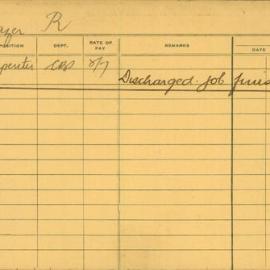 azer R
POSITION DEPT. RATE OF PAY REMARKS DATE
penter 2/7
Discharged. job finis